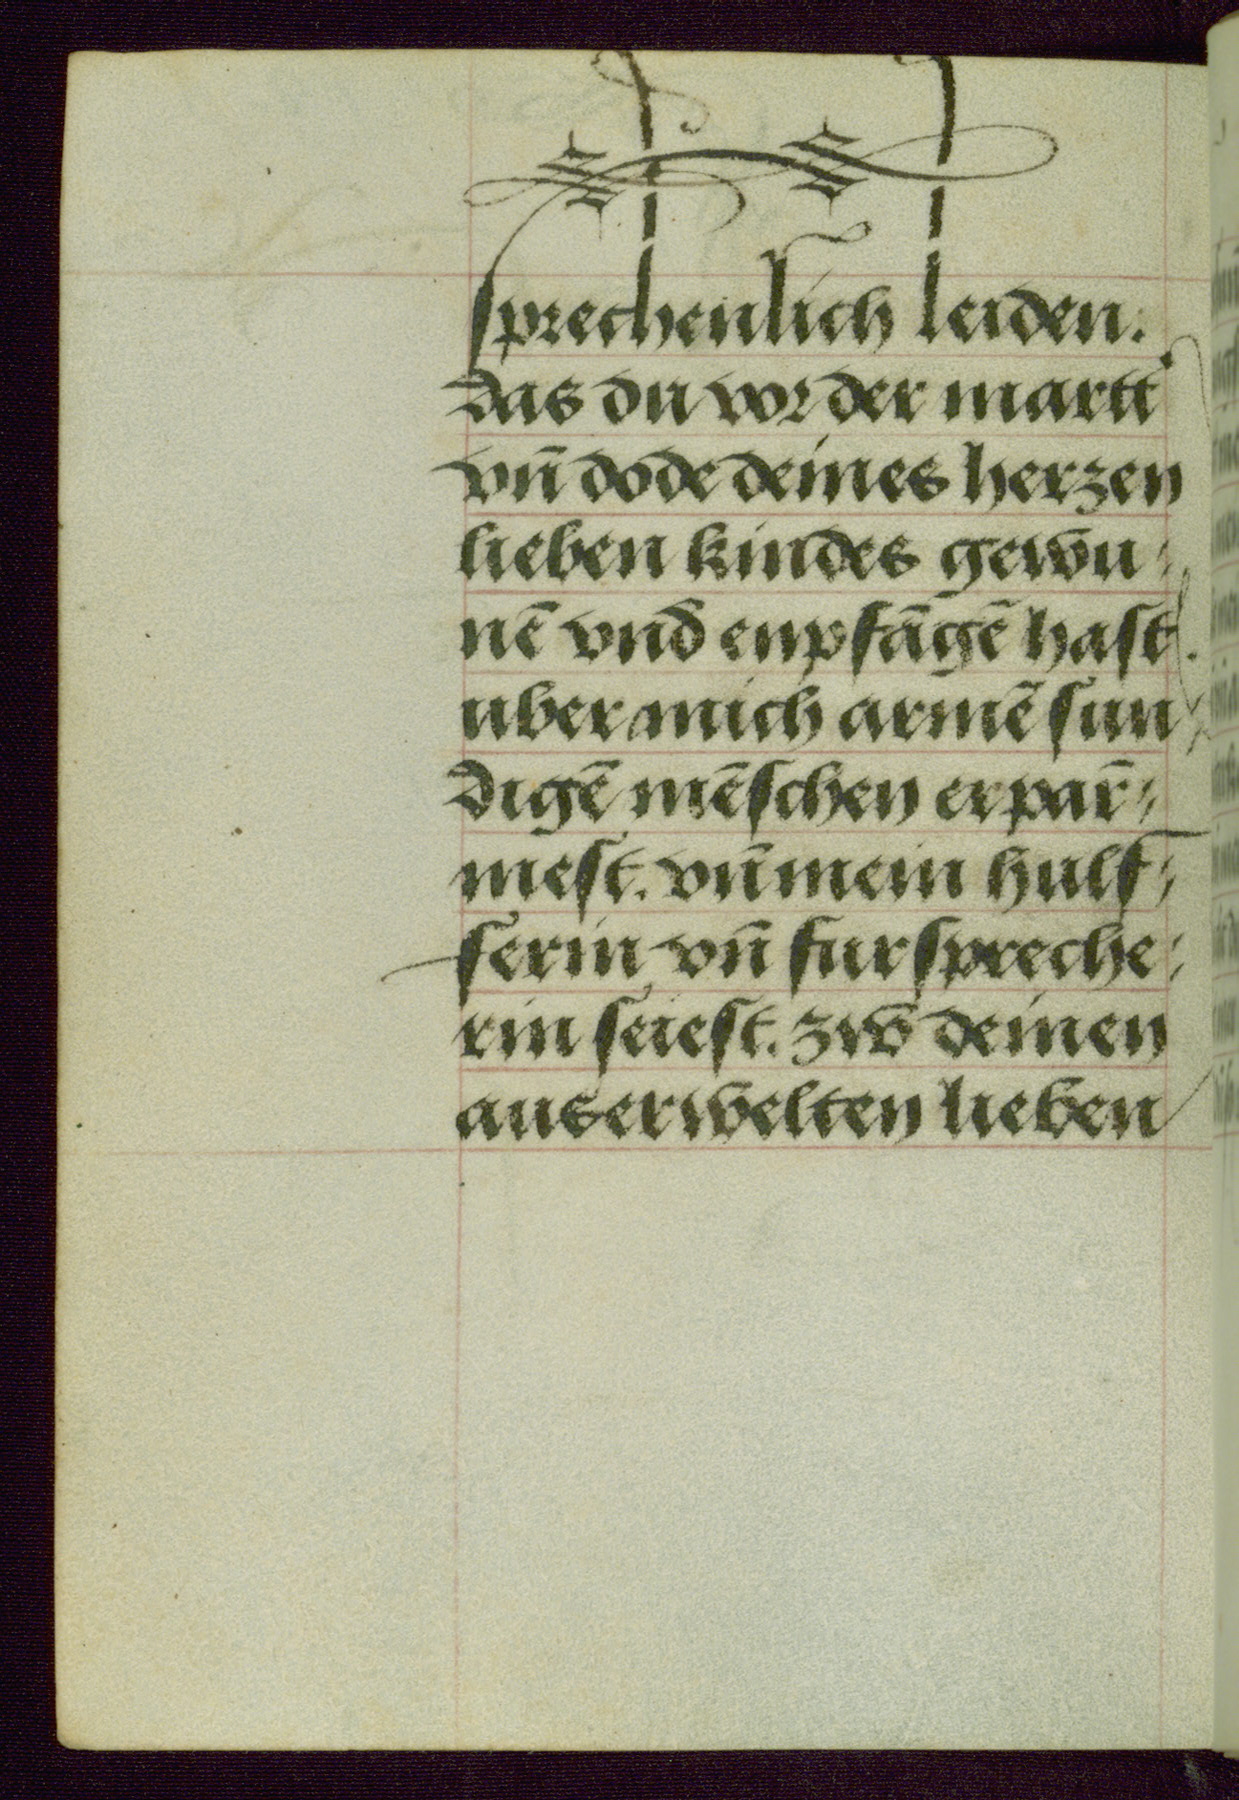 sprechenlich leiden.
das du vor der martt
vn̄ dode deines herzen
lieben kindes gewu̅⸗
nē vnd̄ enpfāgē hast.
uber mich armē sun
digē mēschen erpar̄⸗
mest. vn̄ mein hulf⸗
ferin vn̄ furspreche⸗
rin seiest. zw̄ deinen
auserwelten lieben